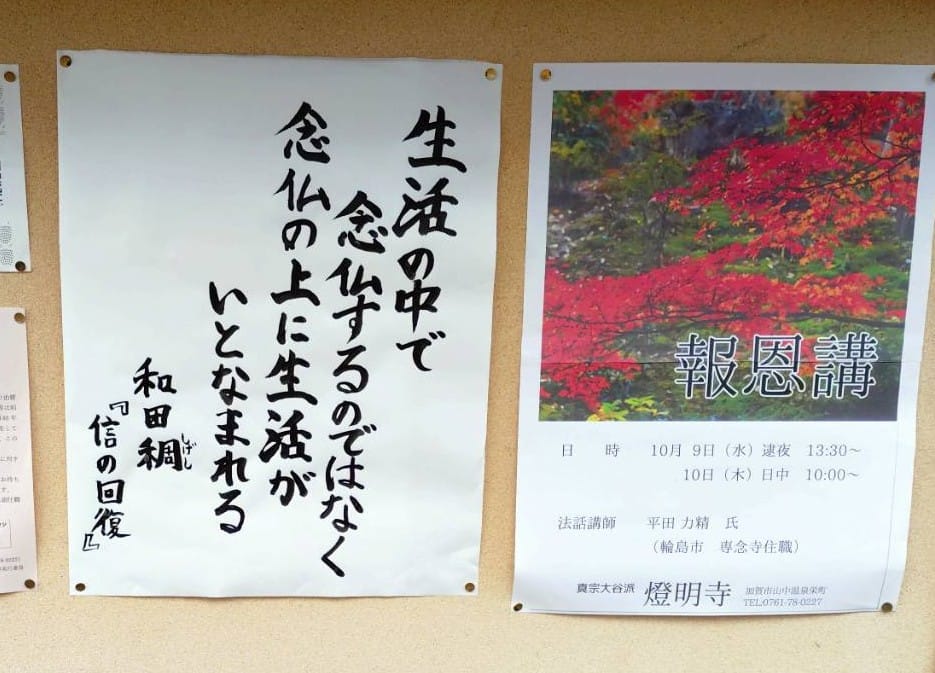 生活の中で
念仏するのではなく
念仏の上に生活が
いとなまれる
和田稠
しげし
『信の回復』
報恩講
日 時 10月 9日（水）逮夜 13:30～
10日（木）日中 10:00～
法話講師 平田 力精 氏
（輪島市 専念寺住職）
真宗大谷派 燈明寺 加賀市山中温泉栄町
TEL:0761-78-0227